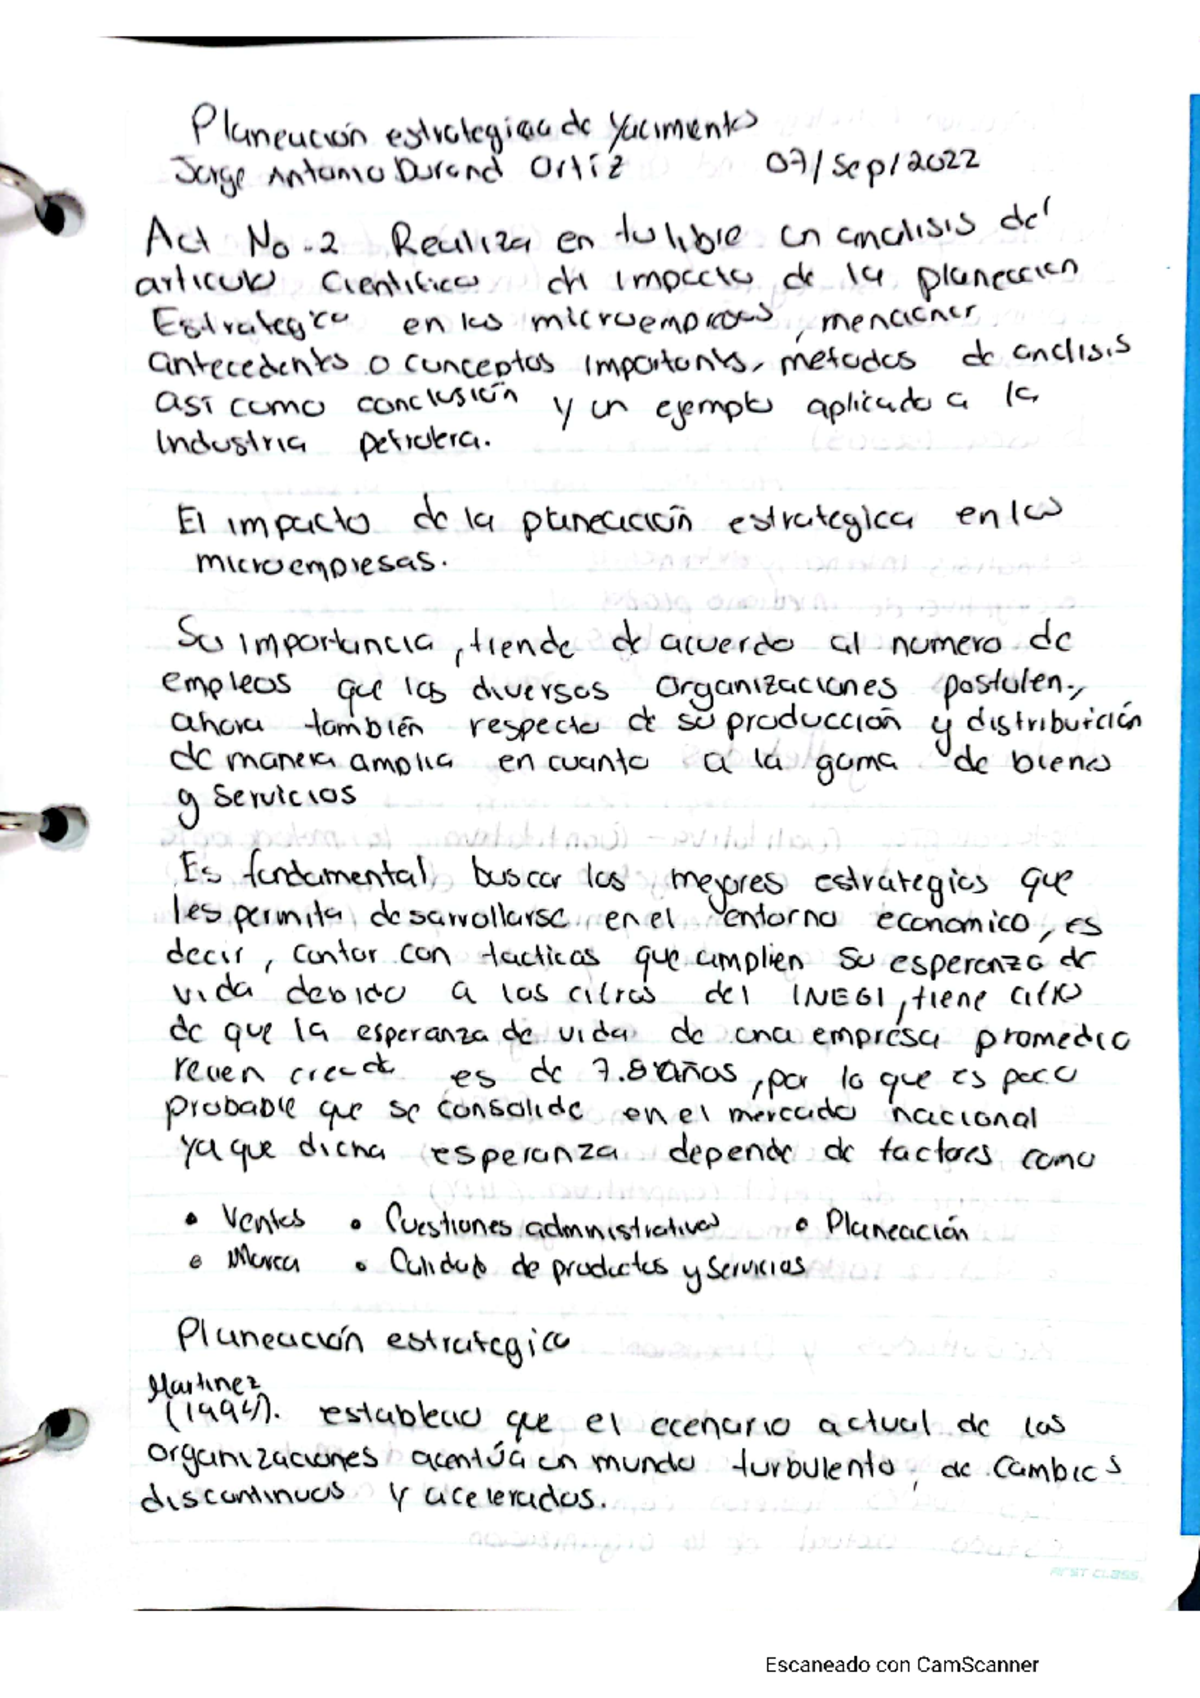 Planeación estrategica de Yacimientos
Jorge Antonio Durand Ortíz 07/Sep/2022
Act No.2 Realiza en tu libre un analisis del
articulo Cientifico del impacto de la planeación
Estrategica en las microempresas, mencionar
antecedentes o conceptos importantes, métodos de analisis
así como conclusión y un ejemplo aplicado a la
Industria petrolera.
El impacto de la planeación estrategica en las
microempresas.
Su importancia, tiende de acuerdo al numero de
empleos que las diversas organizaciones postulen,
ahora también respecto de su producción y distribuición
de manera amplia en cuanto a la gama de bienes
y Servicios
Es fundamental buscar las mejores estrategias que
les permita desarrollarse en el entorno economico, es
decir, contar con tacticas que amplien su esperanza de
vida debido a las cifras del INEGI, tiene cifras
de que la esperanza de vida de una empresa promedio
recien creada es de 7.8 años, por lo que es poco
probable que se consolide en el mercado nacional
ya que dicha esperanza depende de factores como
• Ventas • Cuestiones administrativas • Planeación
• Marca • Calidad de productos y Servicios
Planeación estrategica
Martinez
(1994). establecio que el ecenario actual de las
organizaciones acentúa un mundo turbulento, de cambios
discontinuos y acelerados.
FIRST CLASS
Escaneado con CamScanner